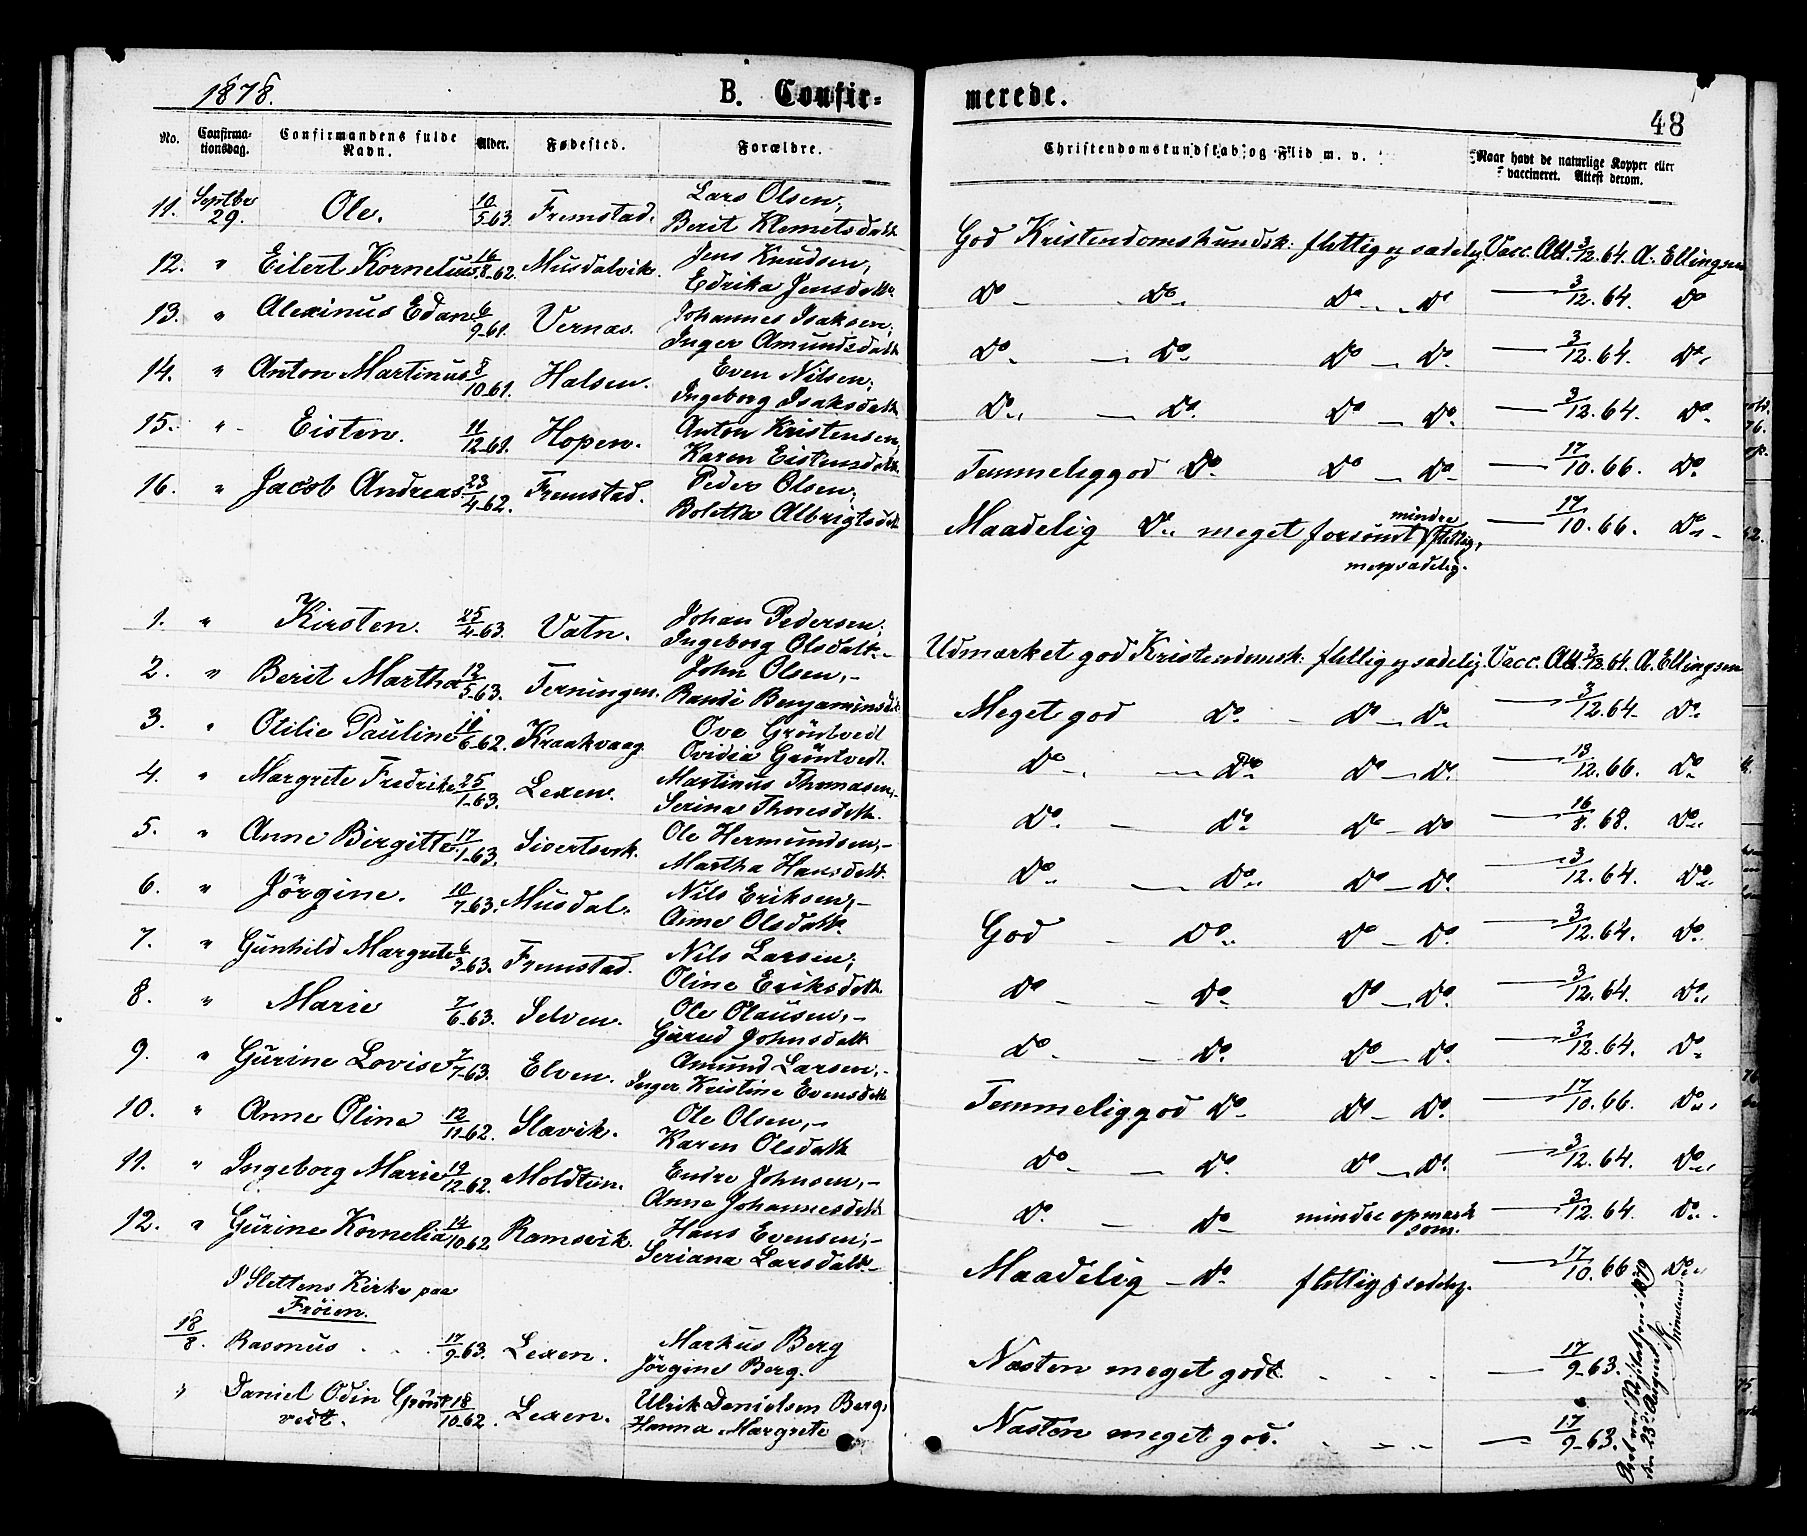 1878.
B. Confir-
merede.
48
No.
Confirma-
tionsdag.
Confirmandens fulde
Navn.
Alder.
Fødested.
Forældre.
Christendomskundskab og Flid m. v.
Naar havt de naturlige Kopper eller
vaccineret. Attest derom.
11. Septbr 29. Ole. 10/5 63. Fremstad. Lars Olsen,
Berit Klemetsdatt.
God Kristendomskundsk: flittig og sædelig. Vacc. Att. 3/12. 64. A. Ellingsen
12. " Eilert Kornelius 16/8 62. Musdalvik. Jens Knudsen,
Edrika Jensdatt.
Do - Do - Do - Do — 3/12. 64. Do
13. " Alexinus Edan 6/9 61. Vernæs. Johannes Isaksen,
Inger Amundsdatt
Do - Do. Do - Do. — 3/12. 64. Do
14. " Anton Martinus 8/10 61. Halsen. Even Nilsen,
Ingeborg Isaksdatt.
Do. - Do. Do - Do. — 3/12. 64. Do.
15. " Eisten. 11/12 61. Hopen. Anton Kristensen,
Karen Eistensdatt.
Temmelig god Do. Do - Do — 17/10. 66. Do.
16. " Jacob Andreas 23/4 62. Fremstad. Peder Olsen,
Boletta Albrigtsdatt
Maadelig Do. meget forsömt mindre flittig,
men sædelig.
— 17/10. 66. Do. -
1. " Kirsten. 25/4 63. Vatn. Johan Pedersen,
Ingeborg Olsdatt. -
Udmærket god Kristendomsk: flittig og sædelig. Vacc. Att. 3/12. 64. A. Ellingsen
2. " Berit Martha 12/5 63. Terningen. John Olsen, -
Randi Benjaminsdtt
Meget god Do. - Do - Do. — 3/12. 64. Do.
3. " Otilie Pauline 11/6 62. Kraakvaag. Ove Gröntvedt
Ovidia Gröntvedt.
Do. - Do Do - Do. — 13/12. 66. Do.
4. " Margrete Fredrikke 25/1 63. Lexen. Martinus Thomasen, -
Serina Thoresdatt.
Do. - Do. Do - Do — 16/8. 68. Do.
5. " Anne Birgitte. 17/1 63. Sivertsvik. Ole Hermundsen, -
Martha Hansdatt.
Do. - Do. Do - Do. — 3/12. 64. Do.
6. " Jörgine. 10/7 63. Musdal. Nils Eriksen, -
Anne Olsdatt
God - Do. Do - Do. — 3/12. 64. Do.
7. " Gunhild Margrete 6/3 63. Fremstad. Nils Larsen,
Oline Eriksdatt.
Do - Do. Do - Do. — 3/12. 64. Do.
8. " Marie 7/6 63. Selven. Ole Olausen, -
Gurud Johnsdatt
Do. - Do. Do - Do. — 3/12. 64. Do.
9. " Gurine Lovise 7/7 63. Elven. Amund Larsen, -
Inger Kristine Evensdatt
Temmelig god Do. Do - Do. — 17/10. 66. Do.
10. " Anne Oline 12/11 62. Slavik. Ole Olsen, -
Karen Olsdatt
Do. - Do. Do - Do. — 3/12. 64. Do.
11. " Ingeborg Marie 19/12 62. Moldtun. Endre Johnsen, -
Anne Johannesdatt
Do. - Do mindre opmærk
som.
— 3/12. 64. Do. -
12. " Gurine Kornelia 14/10 62 Ramsvik. Hans Evensen, -
Seriana Larsdatt. -
Maadelig - Do. flittig og sædelig. — 17/10. 66 Do.
I Slettens Kirke paa
Fröien.
18/8. Rasmus 17/9 63. Lexen. Markus Berg
Jörgine Berg.
Næsten meget godt. — 17/9 63.
" Daniel Odin Grönt-
vedt. 18/10 62. Lexen. Ulrik Danielsen Berg,
Hanna Margrete
Næsten meget god. — 17/9 63.
den 23de August